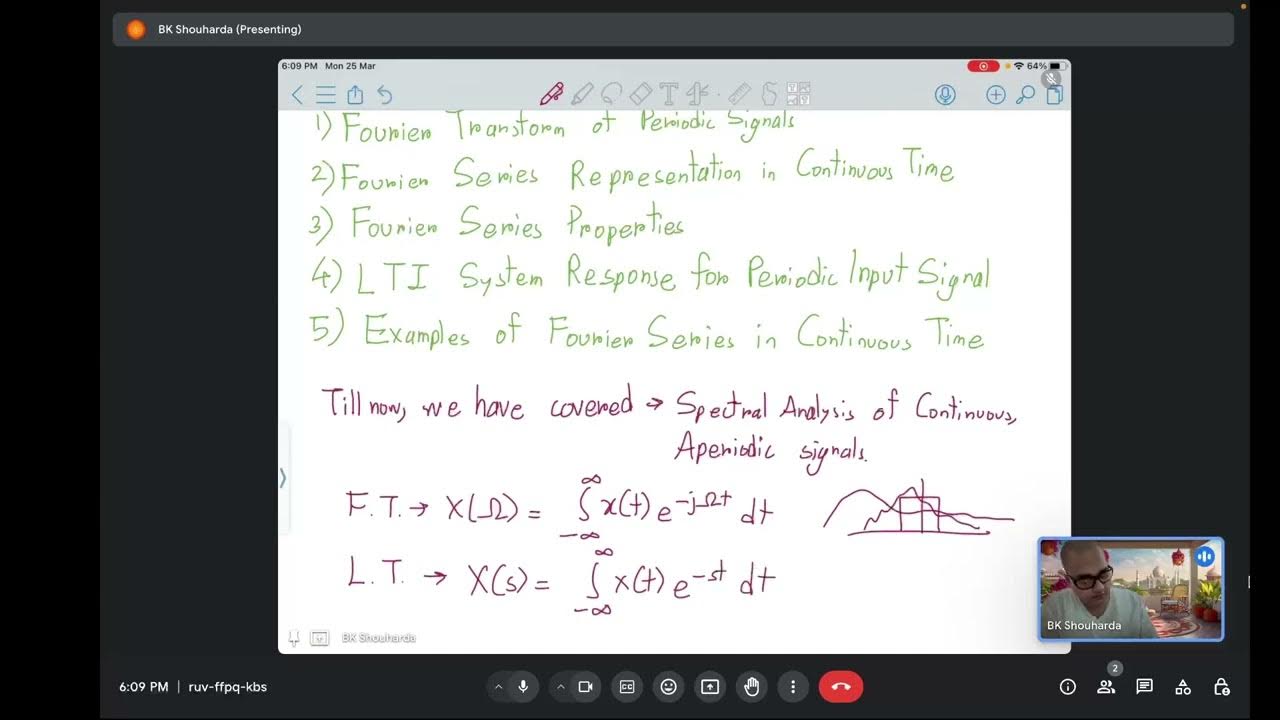 BK Shouharda (Presenting)
6:09 PM Mon 25 Mar
64%
1) Fourier Transform of Periodic Signals
2) Fourier Series Representation in Continuous Time
3) Fourier Series Properties
4) LTI System Response for Periodic Input Signal
5) Examples of Fourier Series in Continuous Time
Till now, we have covered → Spectral Analysis of Continuous,
Aperiodic signals.
F.T. → X(Ω) = ∫_{-∞}^{∞} x(t) e^{-jΩt} dt
L.T. → X(s) = ∫_{-∞}^{∞} x(t) e^{-st} dt
BK Shouharda
BK Shouharda
6:09 PM | ruv-ffpq-kbs
2